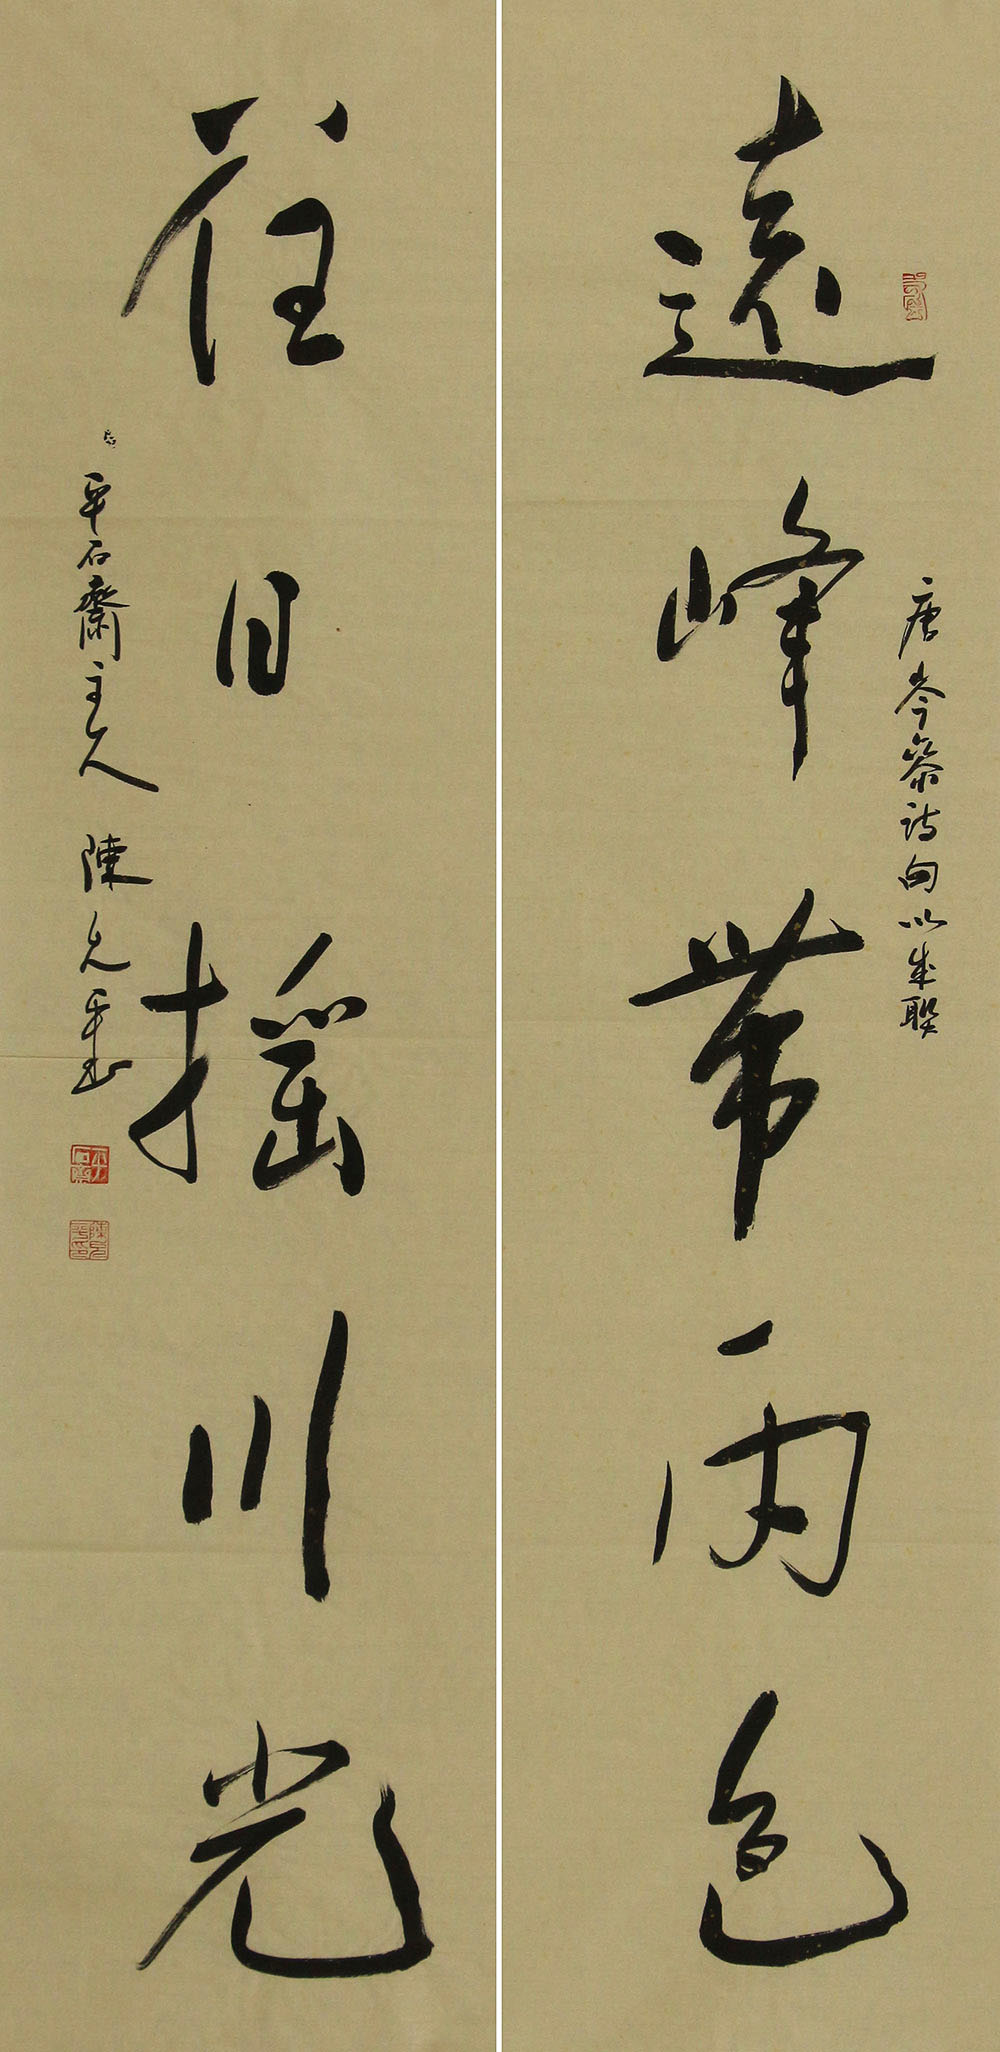 唐岑參詩句以成聯
遠峰帶雨色
落日搖川光
平石齋主人 陳允平書